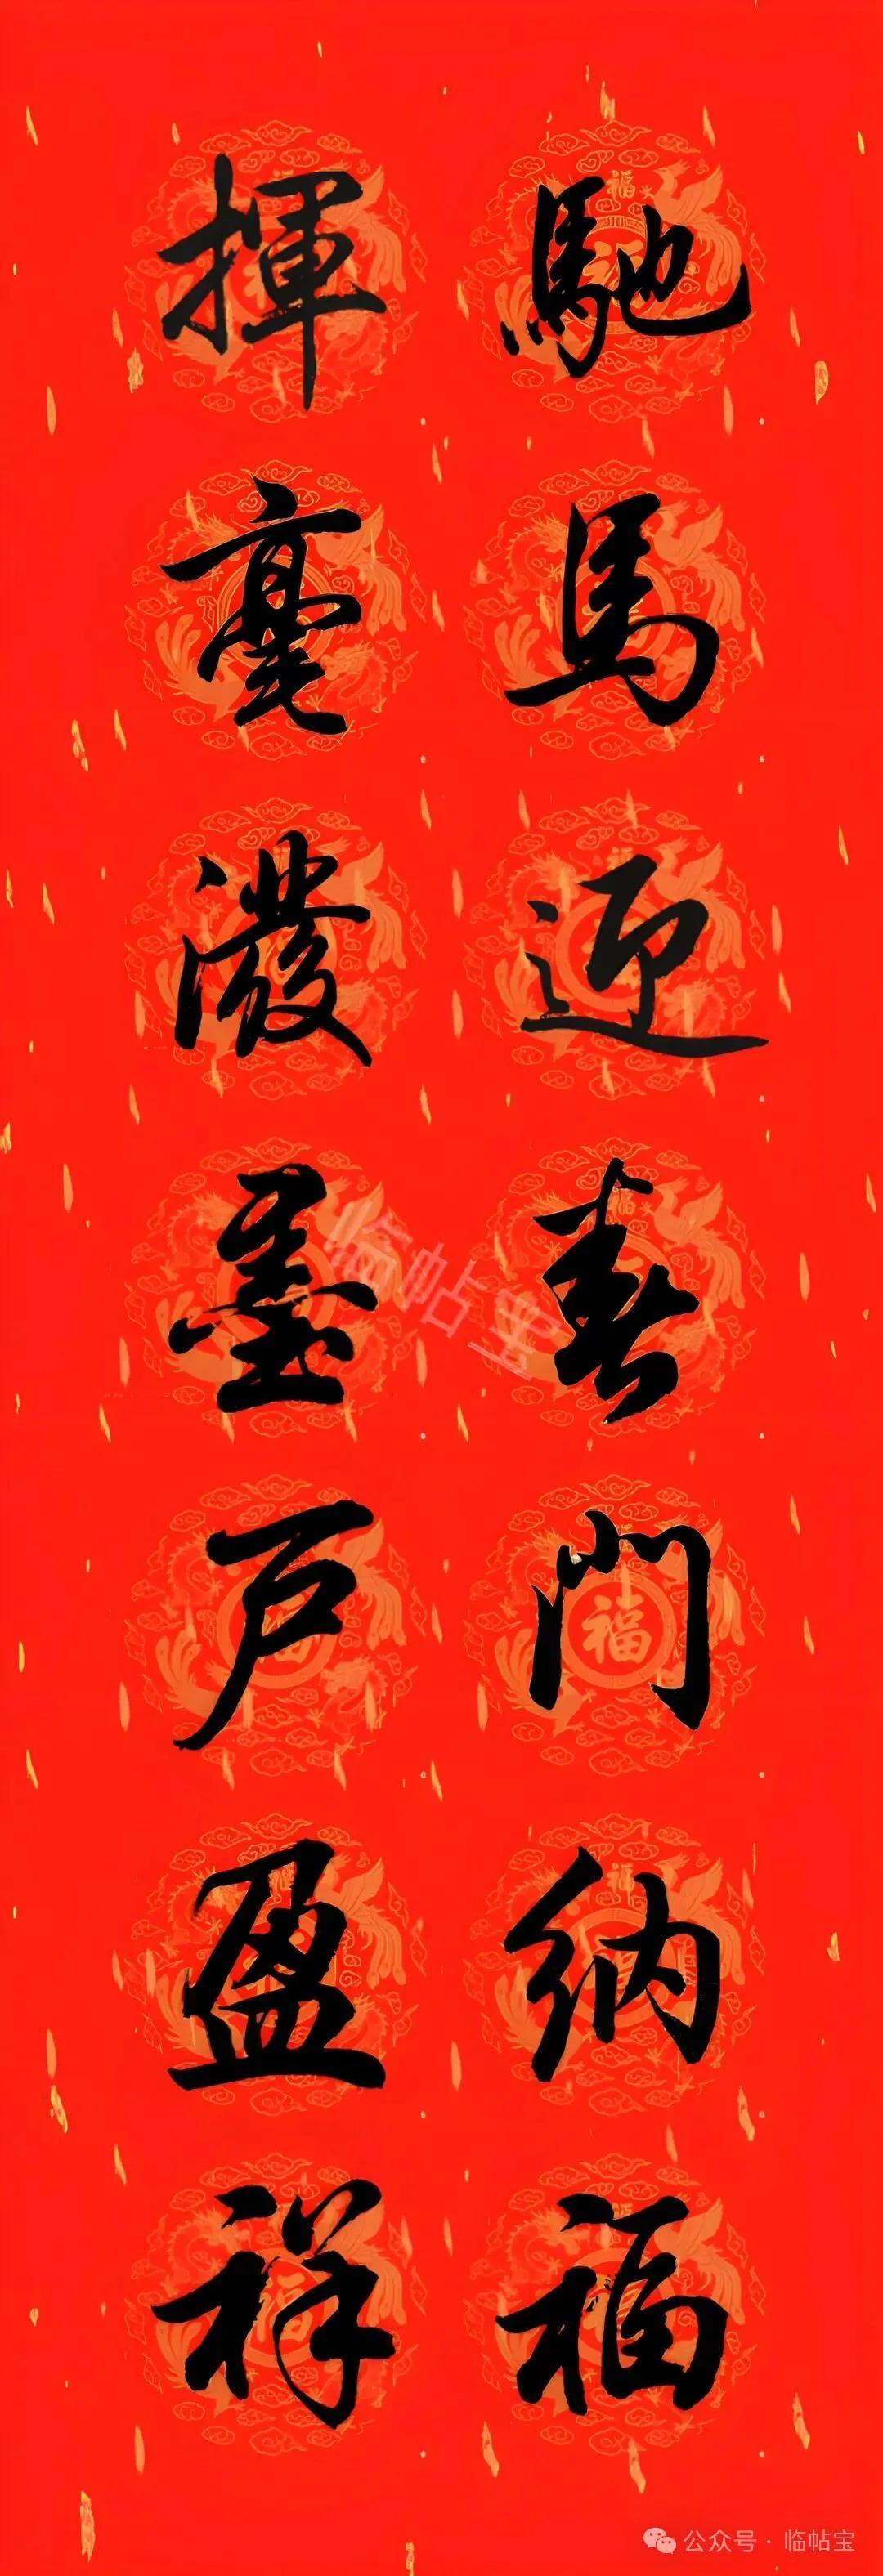 馳馬迎春門納福
揮毫潑墨戶盈祥
临帖宝
公众号·临帖宝